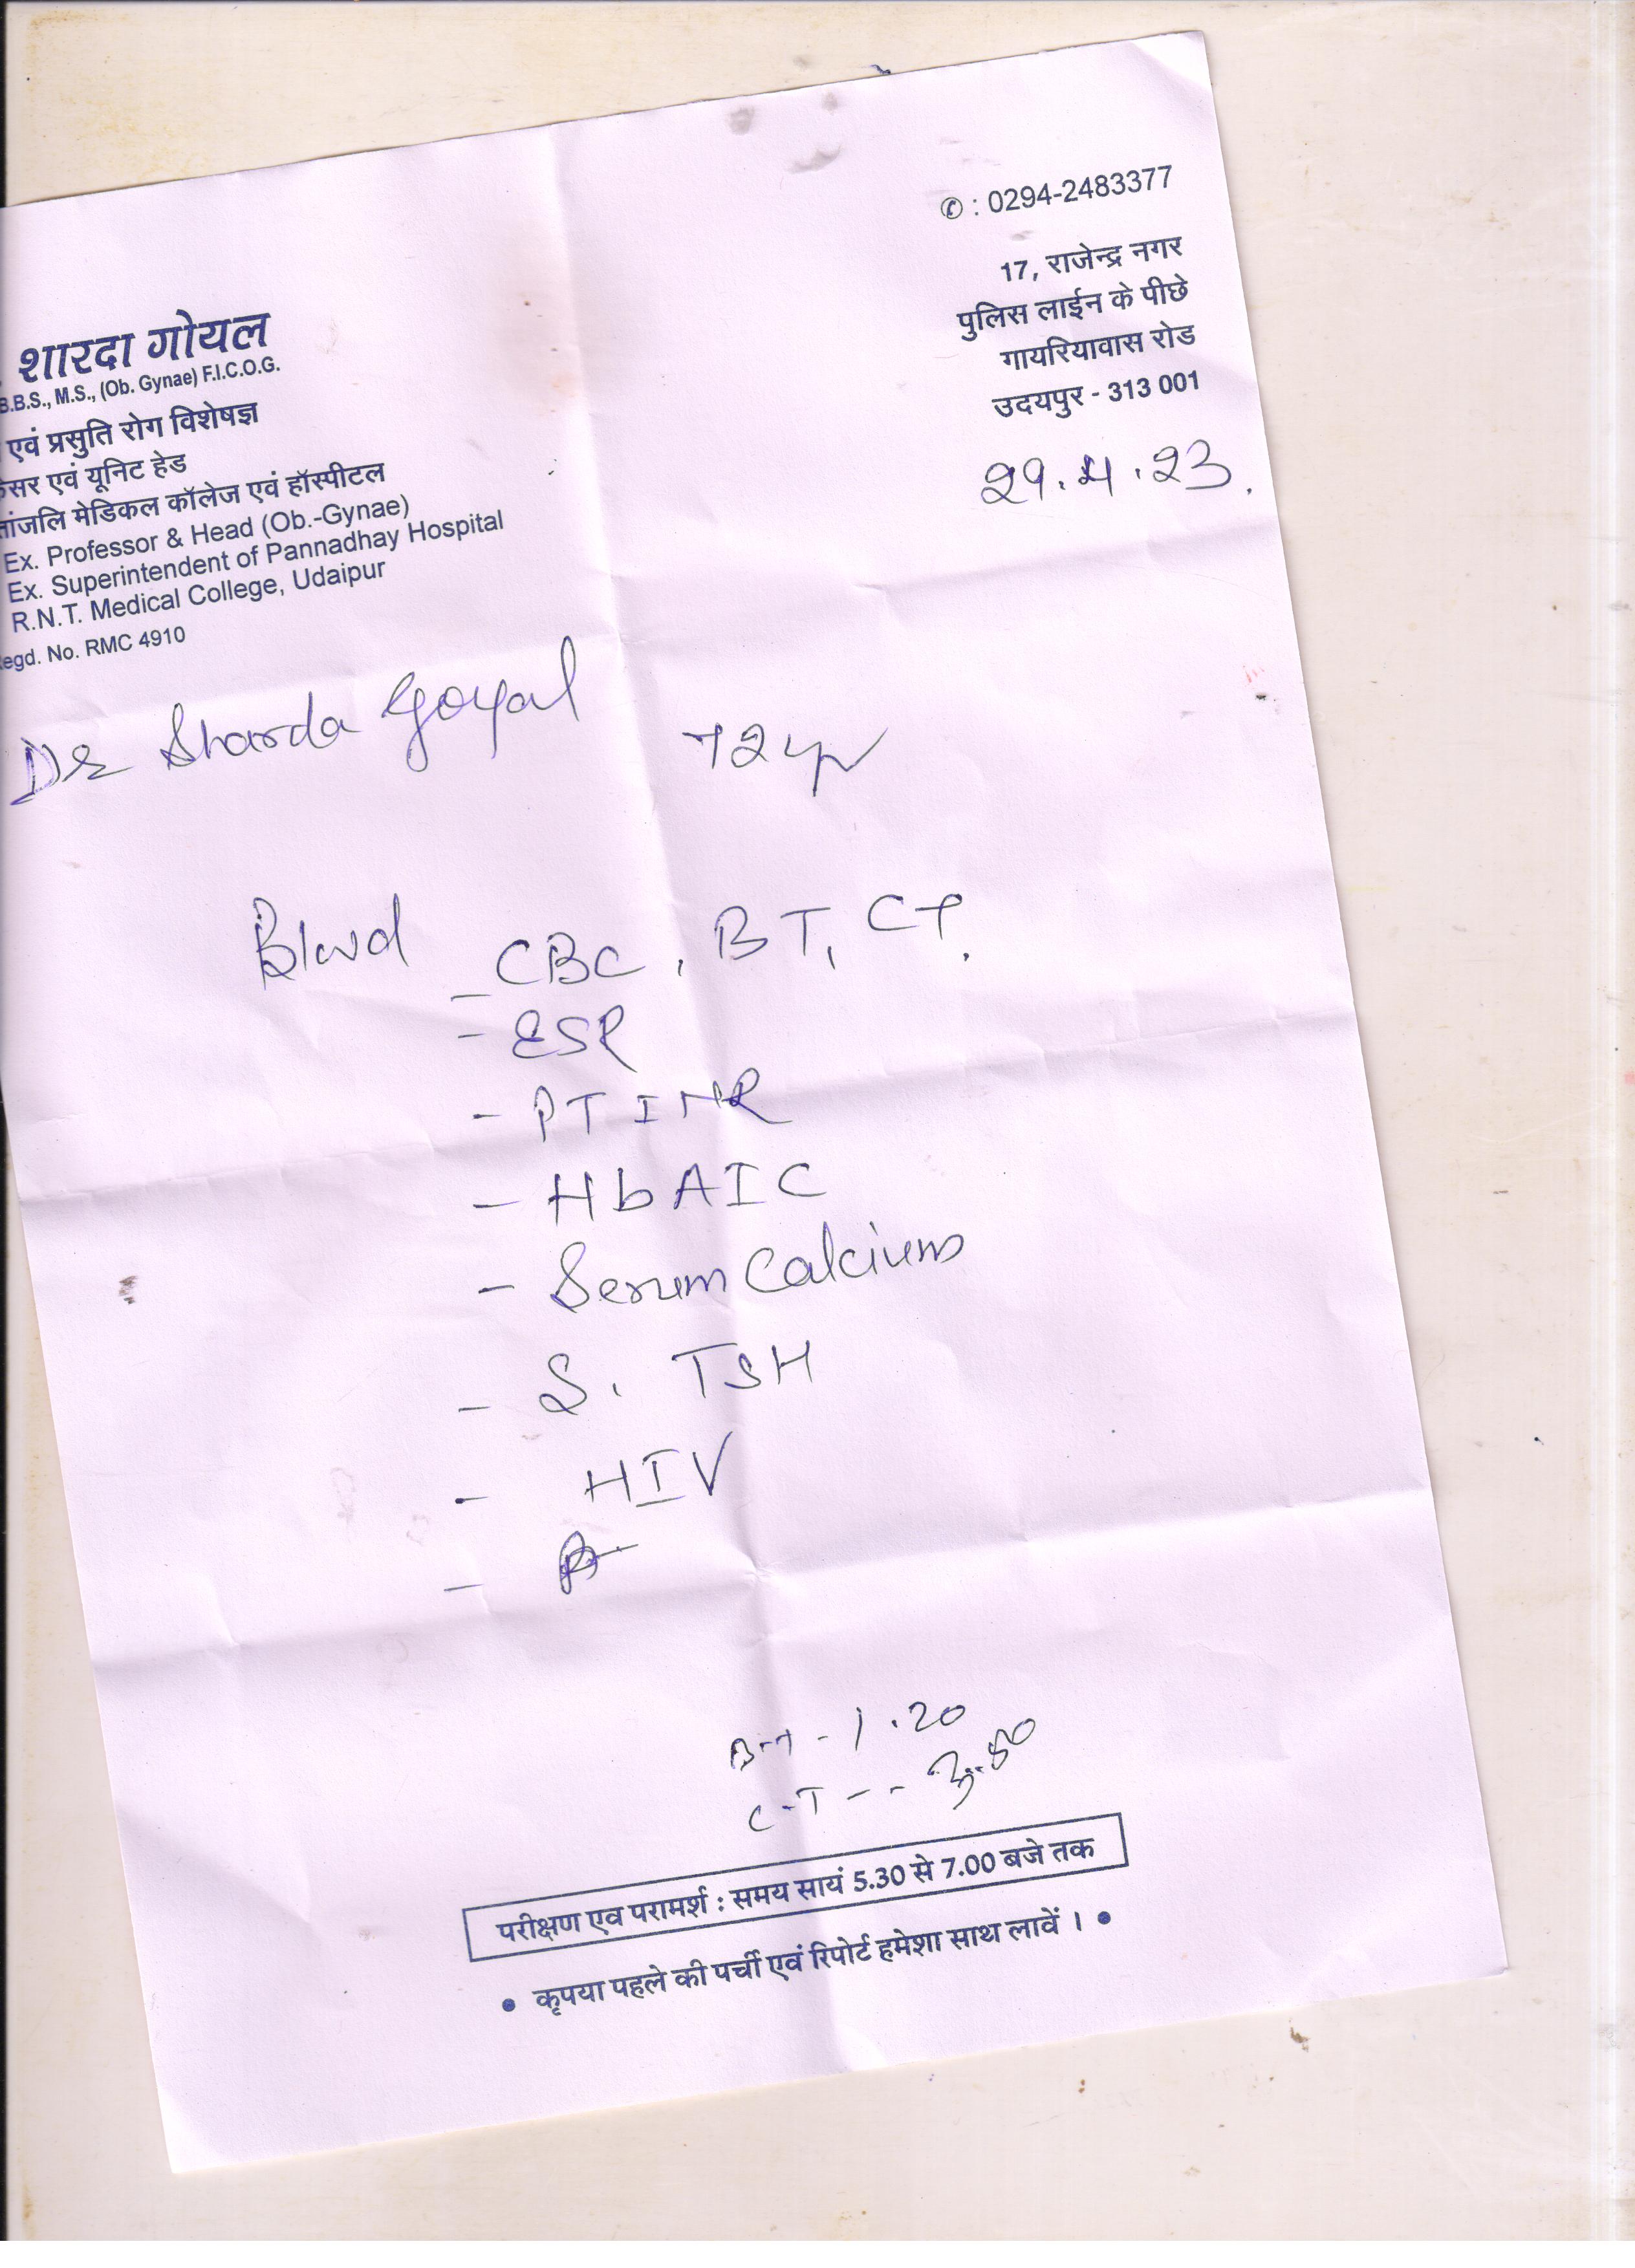 ✆ : 0294-2483377
17, राजेन्द्र नगर
पुलिस लाईन के पीछे
गायरियावास रोड
उदयपुर - 313 001
. शारदा गोयल
B.B.S., M.S., (Ob. Gynae) F.I.C.O.G.
एवं प्रसुति रोग विशेषज्ञ
सर एवं यूनिट हेड
तांजलि मेडिकल कॉलेज एवं हॉस्पीटल
Ex. Professor & Head (Ob.-Gynae)
Ex. Superintendent of Pannadhay Hospital
R.N.T. Medical College, Udaipur
egd. No. RMC 4910
29.4.23.
Dr Sharda Goyal 72 yr
Blood - CBC, BT, CT.
- ESR
- PT INR
- HbA1C
- Serum Calcium
- S. TSH
- HIV
-
B-T - 1.20
C-T -- 3.50
परीक्षण एव परामर्श : समय सायं 5.30 से 7.00 बजे तक
• कृपया पहले की पर्ची एवं रिपोर्ट हमेशा साथ लावें । •